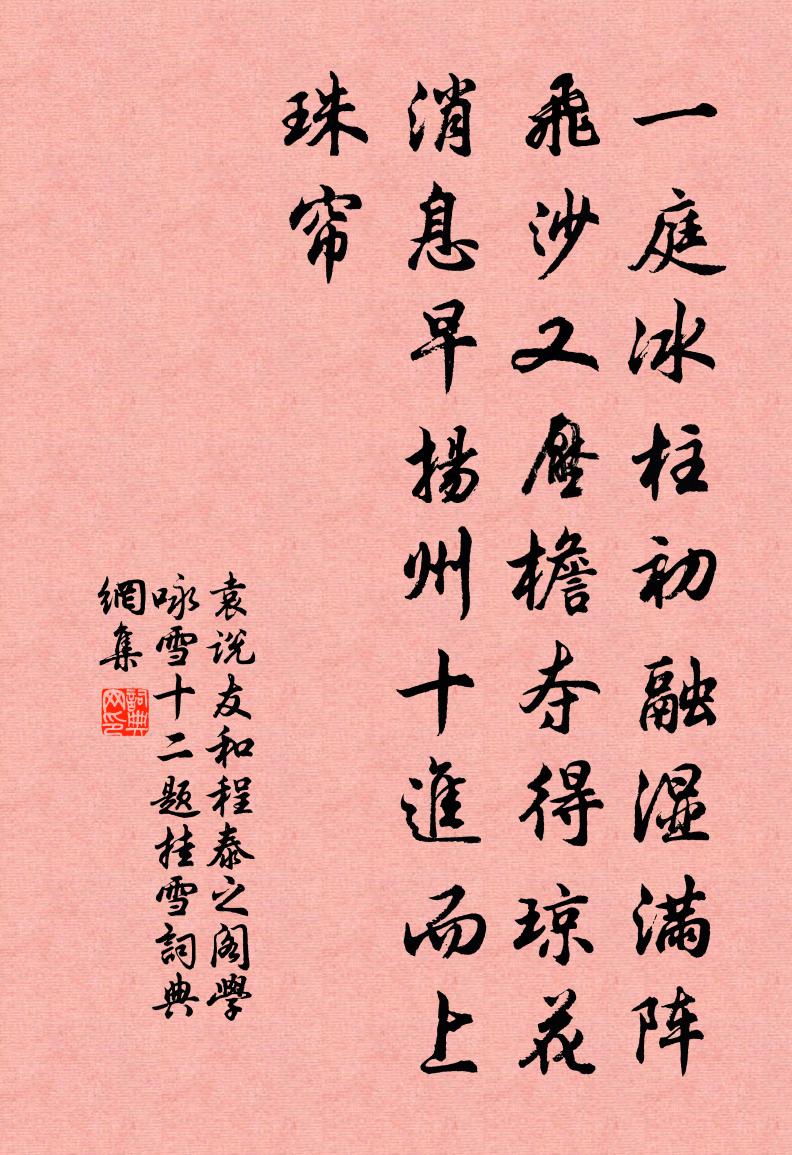 一庭冰柱初融湿满阵
飛沙又壓檐夺得琼花
消息早揚州十進而上
珠帘
袁说友和程泰之阁學
咏雪十二题挂雪詞典
網集
詞典
网印